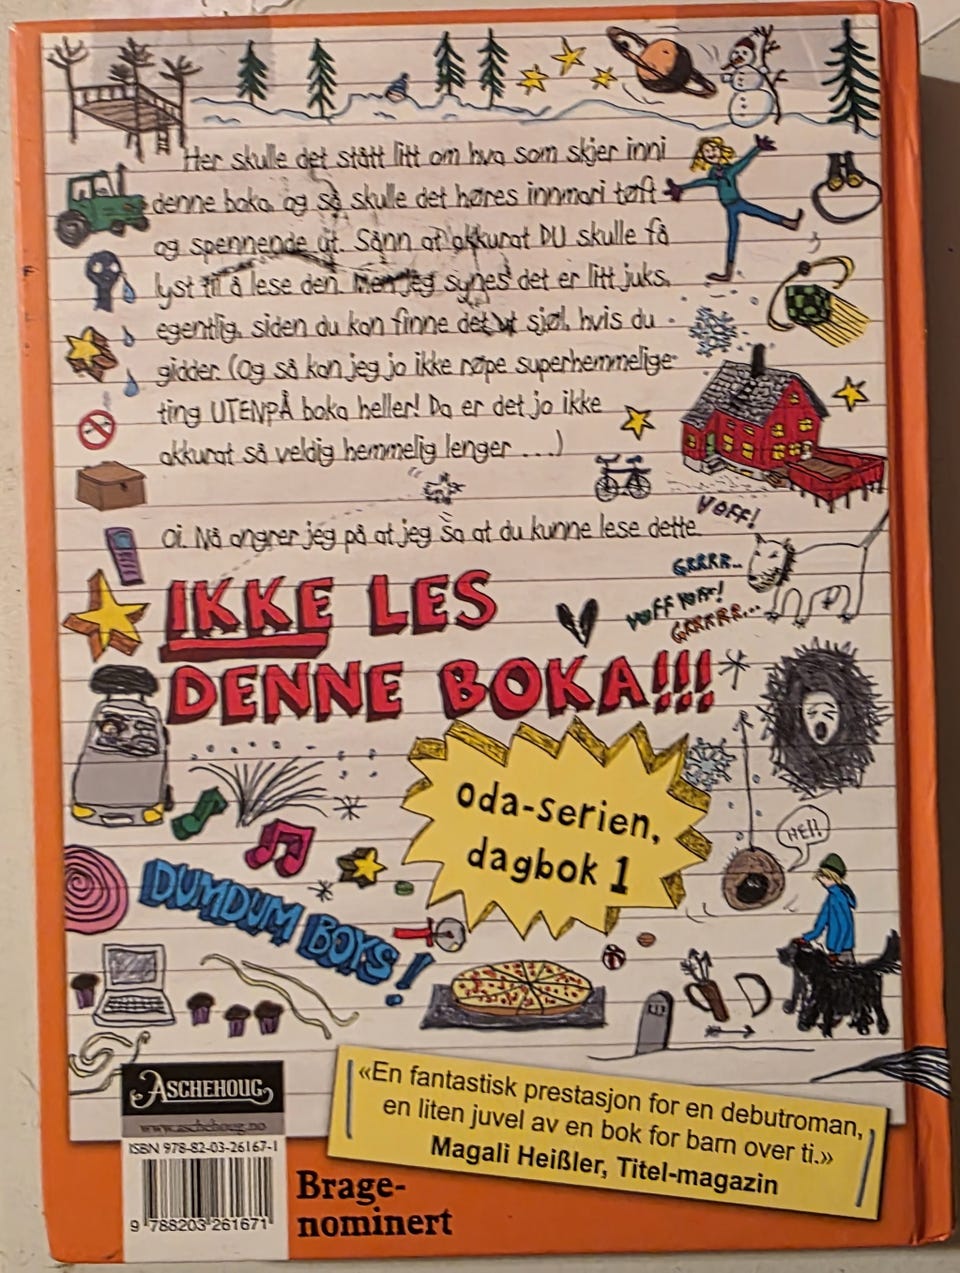 Her skulle det stått litt om hva som skjer inni
denne boka, og så skulle det høres innmari tøft
og spennende ut. Sånn at akkurat DU skulle få
lyst til å lese den. Men jeg synes det er litt juks,
egentlig, siden du kan finne det ut sjøl, hvis du
gidder. (Og så kan jeg jo ikke røpe superhemmelige
ting UTENPÅ boka heller! Da er det jo ikke
akkurat så veldig hemmelig lenger ...)
VOFF!
Oi. Nå angrer jeg på at jeg sa at du kunne lese dette.
GRRRR..
VOFF VOFF!
GRRRRR...
IKKE LES
DENNE BOKA!!!
oda-serien,
dagbok 1
HEI!
DUMDUM BOYS!
ASCHEHOUG
www.aschehoug.no
ISBN 978-82-03-26167-1
9 788203 261671
«En fantastisk prestasjon for en debutroman,
en liten juvel av en bok for barn over ti.»
Magali Heißler, Titel-magazin
Brage-
nominert